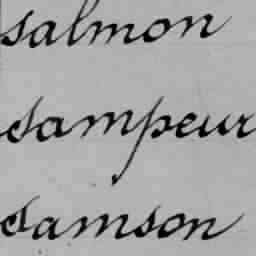 salmon
sampeur
samson